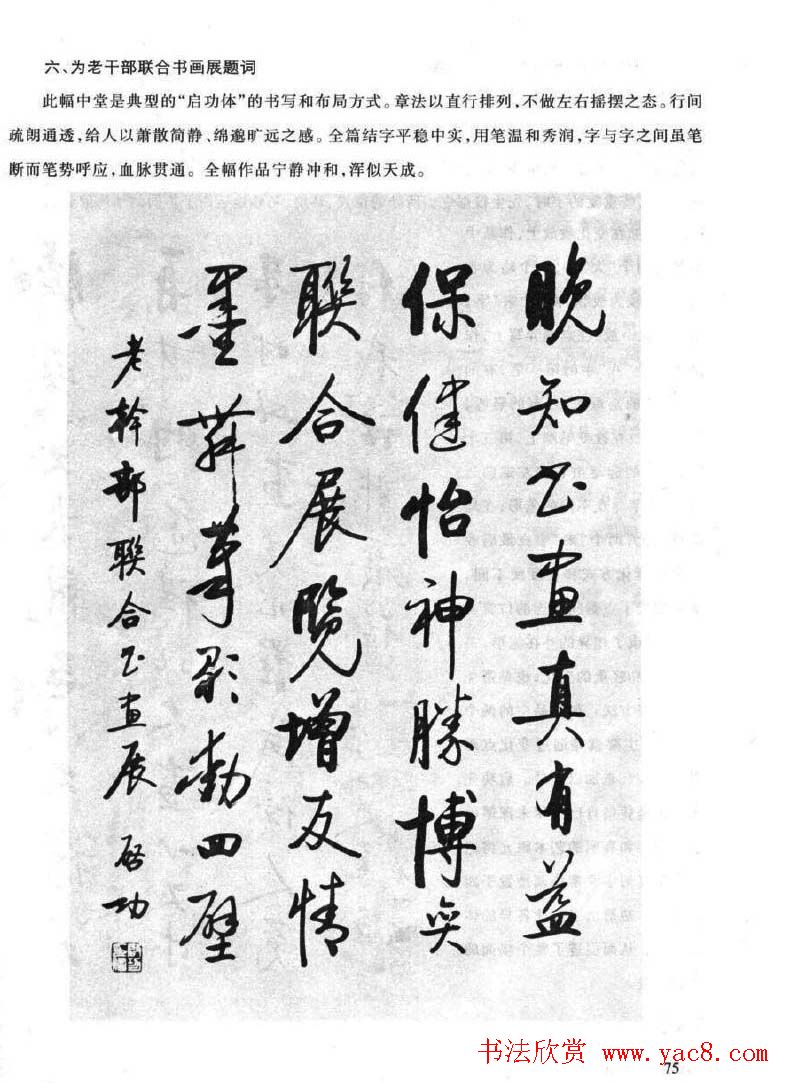 六、为老干部联合书画展题词
此幅中堂是典型的“启功体”的书写和布局方式。章法以直行排列，不做左右摇摆之态。行间
疏朗通透，给人以萧散简静、绵邈旷远之感。全篇结字平稳中实，用笔温和秀润，字与字之间虽笔
断而笔势呼应，血脉贯通。全幅作品宁静冲和，浑似天成。
晚知书畫真有益
保健怡神勝博奕
聯合展覽增友情
墨舞筆歌動四壁
老幹部聯合书畫展 啓功
书法欣赏 www.yac8.com
75